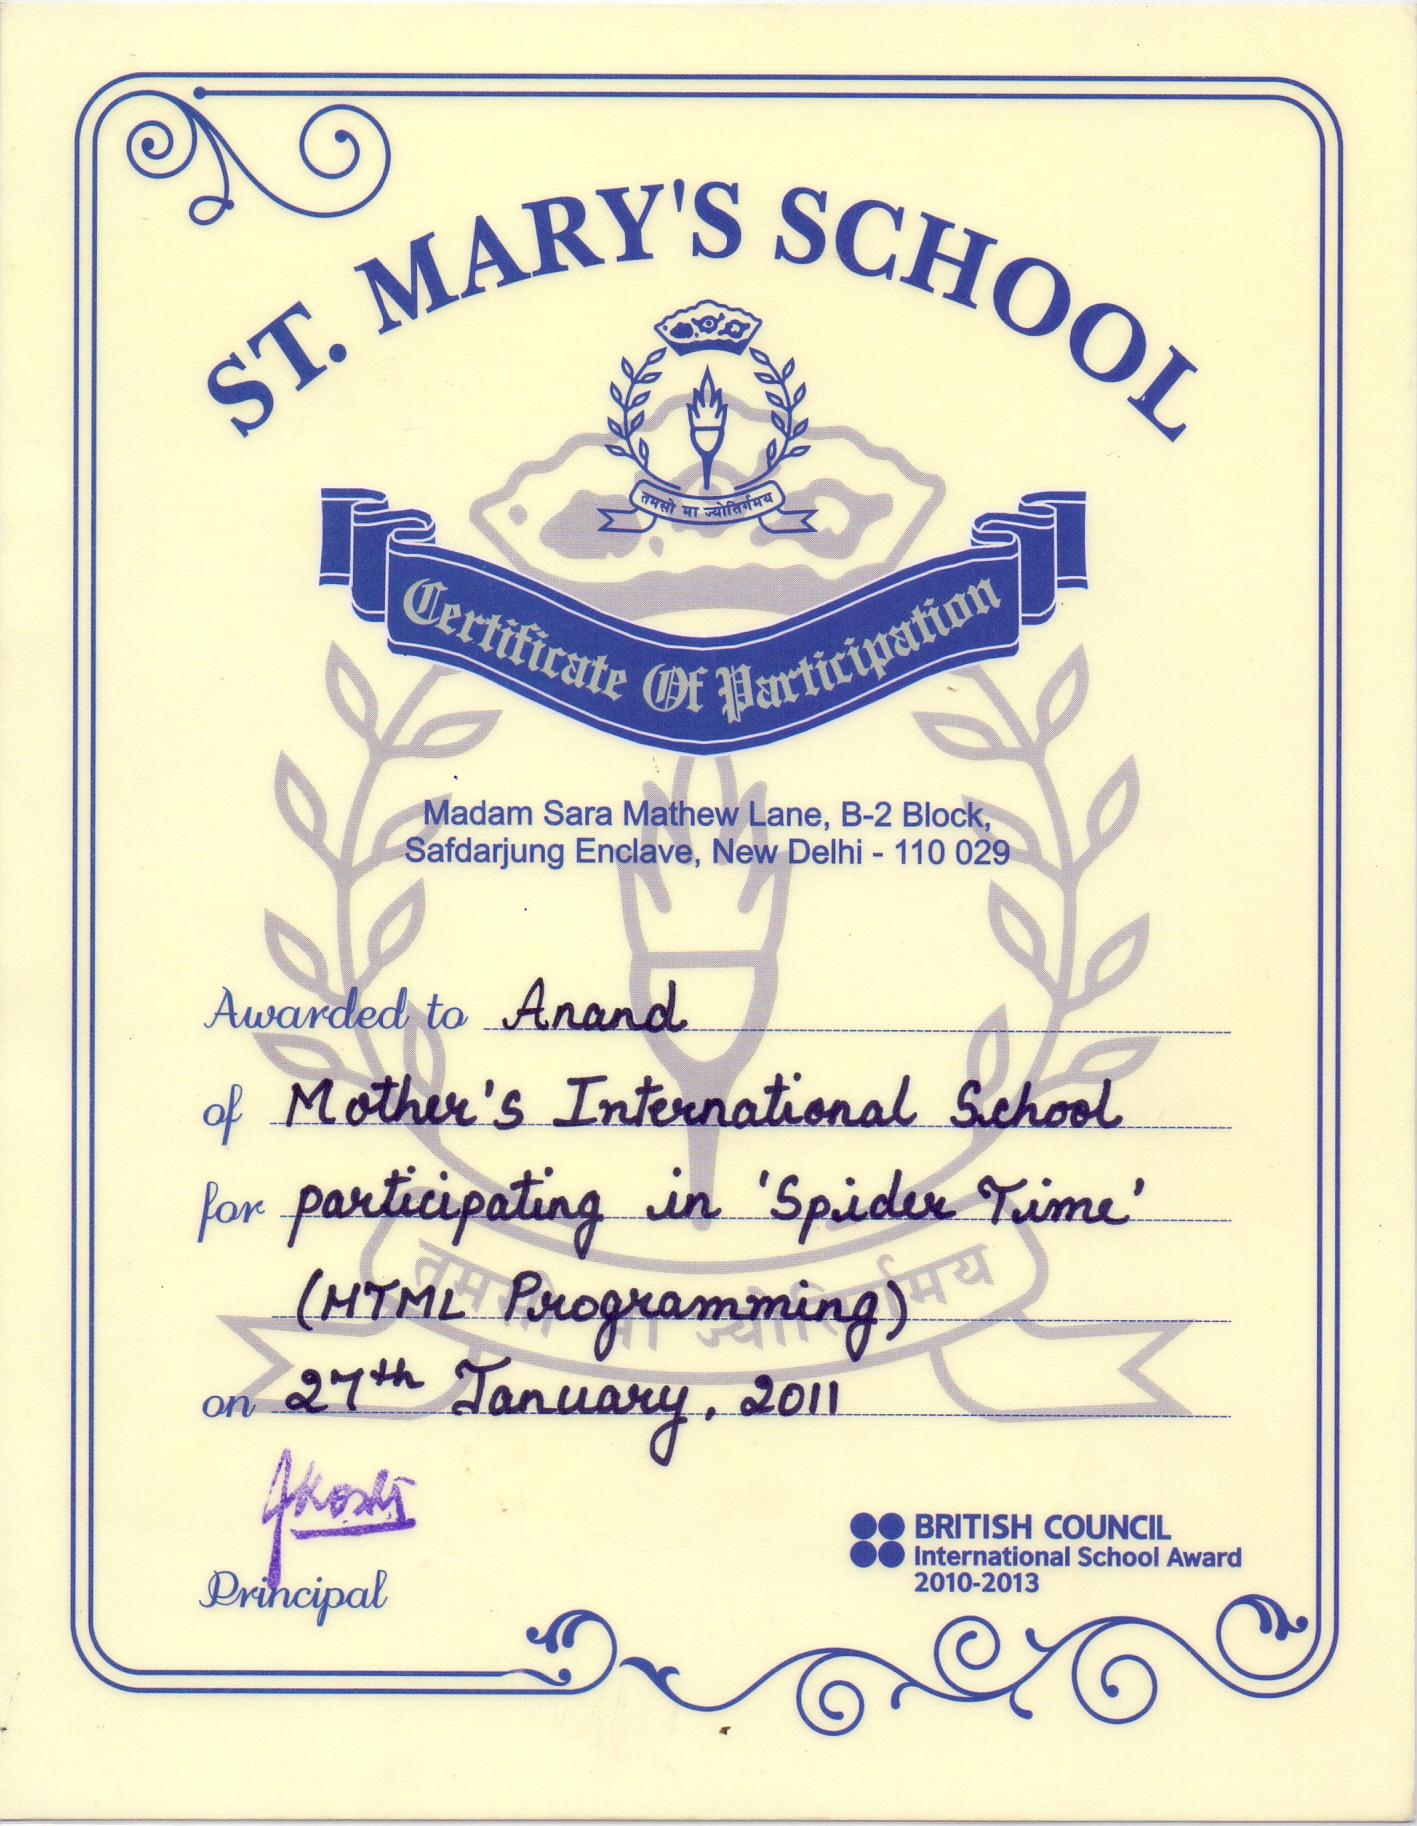 ST. MARY'S SCHOOL
तमसो मा ज्योतिर्गमय
Certificate Of Participation
Madam Sara Mathew Lane, B-2 Block,
Safdarjung Enclave, New Delhi - 110 029
Awarded to Anand
of Mother's International School
for participating in 'Spider Time'
(HTML Programming)
तमसो मा ज्योतिर्गमय
on 27th January, 2011
Principal
BRITISH COUNCIL
International School Award
2010-2013